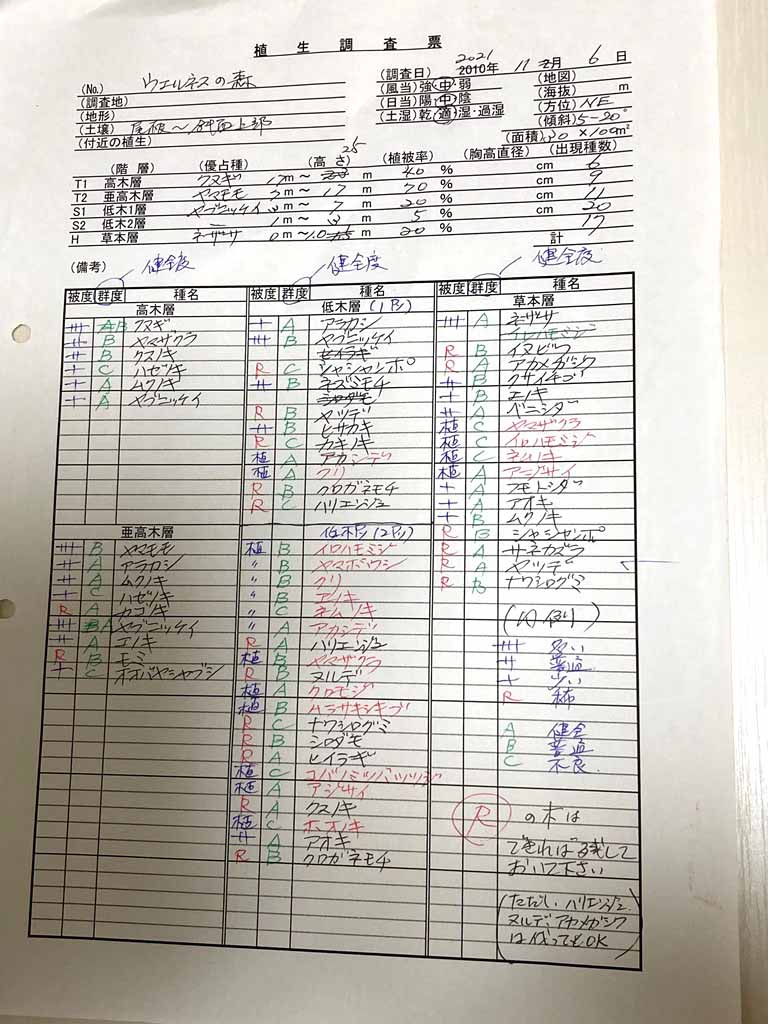 植生調査票
(No.) ウエルネスの森
(調査地)
(地形)
(土壌) 尾根〜斜面上部
(付近の植生)
2021
(調査日) 2010年 11月 6日
(風当) 強・中・弱
(日当) 陽・中・陰
(土湿) 乾・適・湿・過湿
(地図)
(海抜) m
(方位) NE
(傾斜) 5-20°
(面積) 30×100m²
(階層) (優占種) (高さ) (植被率) (胸高直径) (出現種数)
25
T1 高木層 クヌギ 17m〜 m 40 % cm 6
T2 亜高木層 ヤマモモ 7m〜17 m 70 % cm 9
S1 低木1層 ヤブニッケイ 3m〜7 m 20 % cm 11
S2 低木2層 1m〜3 m 5 % cm 20
H 草本層 ネザサ 0m〜1.0 m 20 % 17
計
(備考) 健全度 健全度 健全度
被度 群度 種名
高木層
卅 AB クヌギ
廾 B ヤマザクラ
廾 B クスノキ
+ C ハゼノキ
+ A ムクノキ
+ A ヤブニッケイ
亜高木層
卅 B ヤマモモ
卅 A アラカシ
+ A ムクノキ
+ C ハゼノキ
R A カゴノキ
卅 BA ヤブニッケイ
廾 A エノキ
R B モミ
+ C オオバヤシャブシ
被度 群度 種名
低木層 (1下)
+ A アラカシ
卅 B ヤブニッケイ
ヒイラギ
R C シャシャンポ
廾 B ネズミモチ
シロダモ
R B ヤツデ
廾 B ヒサカキ
R C カキノキ
植 A アカシデ
植 A クリ
R B クロガネモチ
R C ハリエンジュ
植 B イロハモミジ
〃 B ヤマボウシ
〃 B クリ
〃 B エノキ
〃 C ネムノキ
〃 A アカシデ
R A ハリエンジュ
植 B ヤマザクラ
R B ヌルデ
植 A クロモジ
植 B ムラサキシキブ
R C ナワシログミ
R B シロダモ
R A ヒイラギ
植 C コバノミツバツツジ
植 A アジサイ
R A クスノキ
植 C ホオノキ
廾 A アオキ
R B クロガネモチ
被度 群度 種名
草本層
卅 A ネザサ
イロハモミジ
R B イヌビワ
R A アカメガシワ
廾 B クサイチゴ
+ B エノキ
廾 A ベニシダ
植 C ヤマザクラ
植 C イロハモミジ
植 C ネムノキ
植 A アジサイ
+ A フモトシダ
+ A アオキ
+ B ムクノキ
R B シャシャンポ
R A サネカズラ
R A ヤツデ
R B ナワシログミ
(凡例)
卅 多い
廾 普通
+ 少い
R 稀
A 健全
B 普通
C 不良
R の木は
できれば残して
おいて下さい
(ただし、ハリエンジュ
ヌルデ、アカメガシワ
は伐ってもOK)